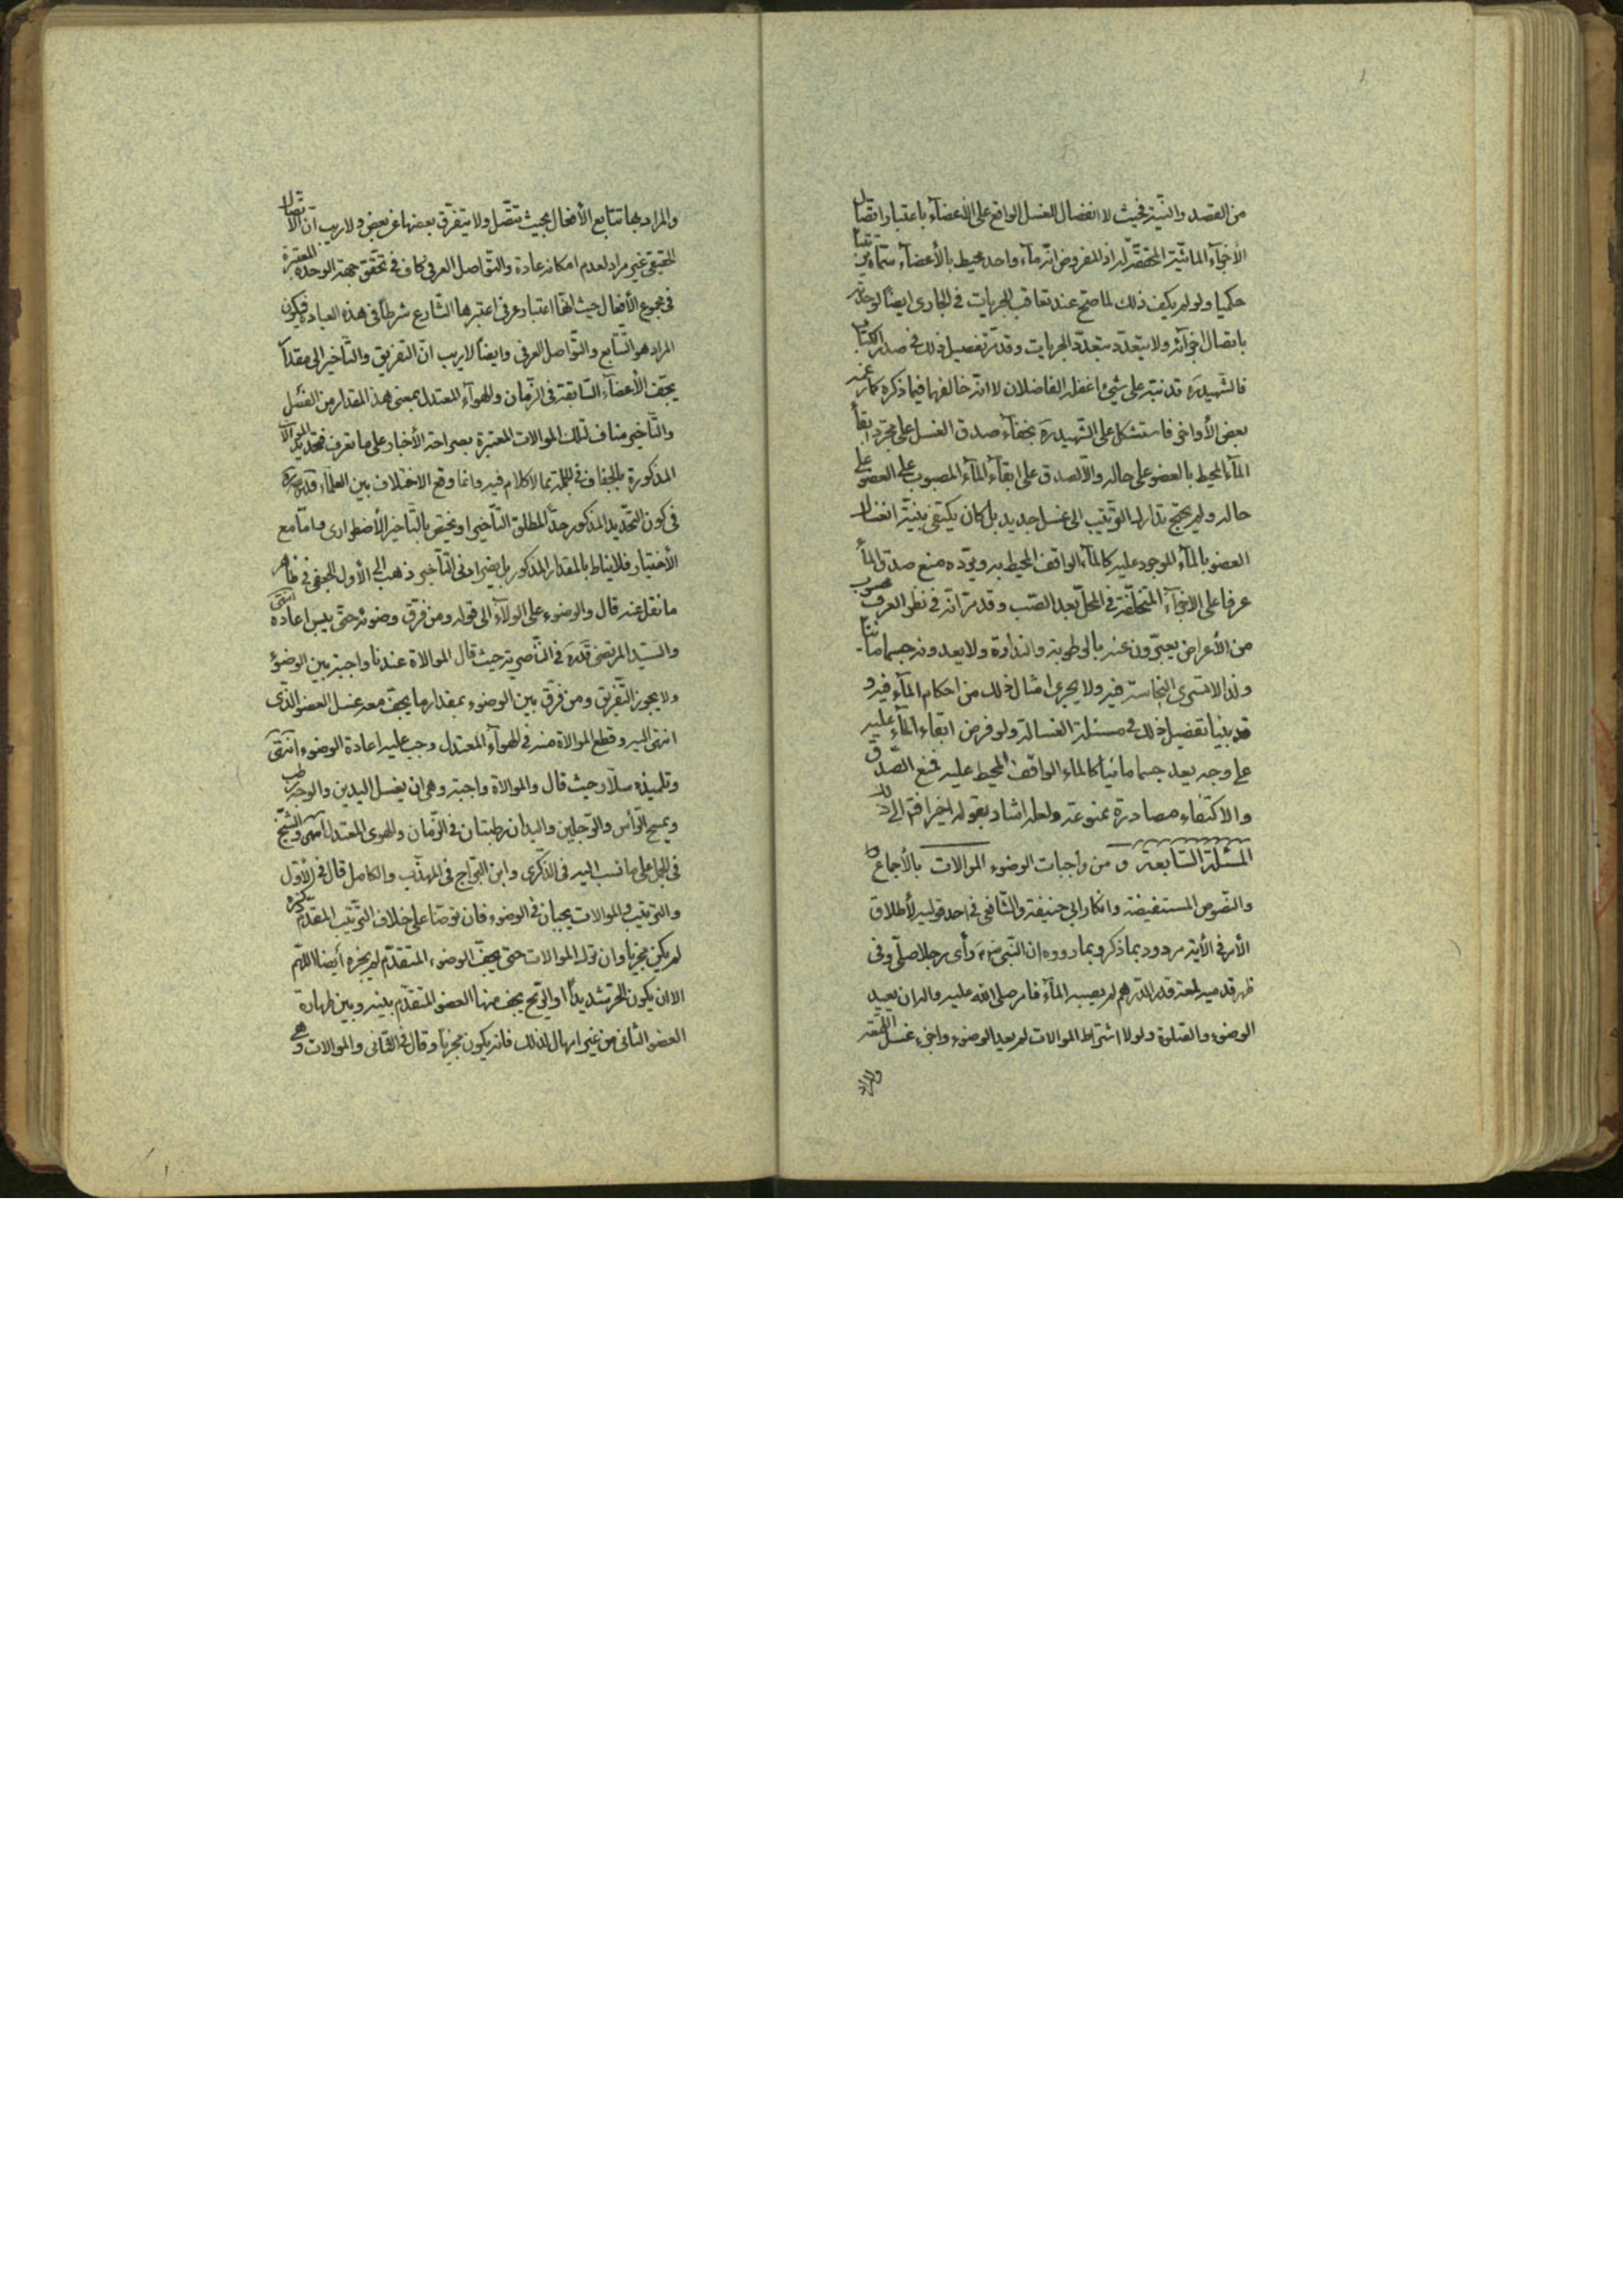 من القصد والنية فحيث لا انفصال للغسل الواقع على الاعضاء باعتبار اتصال
الأجزاء المائية المتحققة اذ المفروض انه ماء واحد محيط بالأعضاء سماه ترتيبا
حكميا ولو لم يكف ذلك لما صح عند تعاقب الجريات في الجارى ايضا لوحدته
باتصال اجزائه ولا يتعدد بتعدد الجريات وقد مر تفصيل ذلك في صدر الكتاب
فالشهيد ره قد نبه على شيء اغفله الفاضلان لا انه خالفهما فيما ذكره كما زعمه
بعض الأواخر فاستشكل على الشهيد ره بخفاء صدق الغسل على مجرد ابقاء
الماء المحيط بالعضو على حاله والا لصدق على ابقاء الماء المصبوب على العضو على
حاله ولم يحتج تدارك الترتيب الى غسل جديد بل كان يكتفى بنية انغسال
العضو بالماء الموجود عليه كالماء الواقف المحيط به ويرده منع صدق الماء
عرفا على الاجزاء المتخلفة في المحل بعد الصب وقد مر انه في نظر العرف محسوب
من الأعراض يعبرون عنه بالرطوبة والنداوة ولا يعدونه جسما مائيا
ولذا لا تسرى النجاسة فيه ولا يجرى امثال ذلك من احكام الماء فيه و
قد بينا تفصيل ذلك في مسئلة الغسالة ولو فرض ابقاء الماء عليه
على وجه يعد جسما مائيا كالماء الواقف المحيط عليه فمنع الصدق
والاكتفاء مصادرة ممنوعة ولعله اشار بقوله اخيرا فتم الى ذلك
المسئلة السابعة و من واجبات الوضوء الموالات بالأجماع
والنصوص المستفيضة وانكار ابى حنيفة والشافعى في احد قوليه لأطلاق
الأمر في الأية مردود بما ذكر وبما رووه ان النبى ص رأى رجلا صلى وفى
ظهر قدميه لمعة قدر الدرهم لم يصبه الماء فامر صلى الله عليه واله ان يعيد
الوضوء والصلوة ولولا اشتراط الموالات لم يعد الوضوء واجزء غسل اللمعة
والمراد
والمراد بها تتابع الأفعال بحيث تتصل ولا يتفرق بعضها عن بعض ولا ريب ان الاتصال
الحقيقى غير مراد لعدم امكانه عادة والتواصل العرفى كاف في تحقق جهة الوحدة المعتبرة
في مجموع الأفعال حيث انها اعتبار عرفى اعتبرها الشارع شرطا في هذه العبادة فيكون
المراد هو التتابع والتواصل العرفى وايضا لا ريب ان التفريق والتأخير الى مقدار
يجف الأعضاء السابقة في الزمان والهواء المعتدل بمعنى هذا المقدار من الفصل
والتأخير مناف لتلك الموالات المعتبرة بصراحة الأخبار على ما تعرف فتحديد الموالات
المذكورة بالجفاف في الجملة مما لا كلام فيه وانما وقع الاختلاف بين العلماء قدس سره
في كون التحديد المذكور حدا لمطلق التأخير او يختص بالتأخير الأضطرارى واما مع
الأختيار فلا يناط بالمقدار المذكور بل يضر ادنى التأخير ذهب الى الأول الجعفى في ظاهر
ما نقل عنه قال والوضوء على الولاء الى قوله ومن فرق وضوئه حتى يبس اعاده انتهى
والسيد المرتضى قده في الناصرية حيث قال الموالاة عندنا واجبة بين الوضوء
ولا يجوز التفريق ومن فرق بين الوضوء بمقدار ما يجف معه غسل العضو الذى
انتهى اليه وقطع الموالاة منه في الهواء المعتدل وجب عليه اعادة الوضوء انتهى
وتلميذه سلار حيث قال والموالاة واجبة وهى ان يغسل اليدين والوجه رطب
ويمسح الرأس والرجلين واليدان رطبتان في الزمان والهوى المعتدل انتهى والشيخ
في الجمل على ما نسب اليه في الذكرى وابن البراج في المهذب والكامل قال في الأول
والترتيب والموالات يجبان في الوضوء فان توضأ على خلاف الترتيب المقدم ذكره
لم يكن مجزيا وان ترك الموالات حتى يجف الوضوء المتقدم لم يجزه أيضا اللهم
الا ان يكون الحر شديدا او الريح يجف منها العضو المتقدم بينه وبين طهارة
العضو الثانى من غير امهال لذلك فانه يكون مجزيا وقال في الثانى والموالات وهى